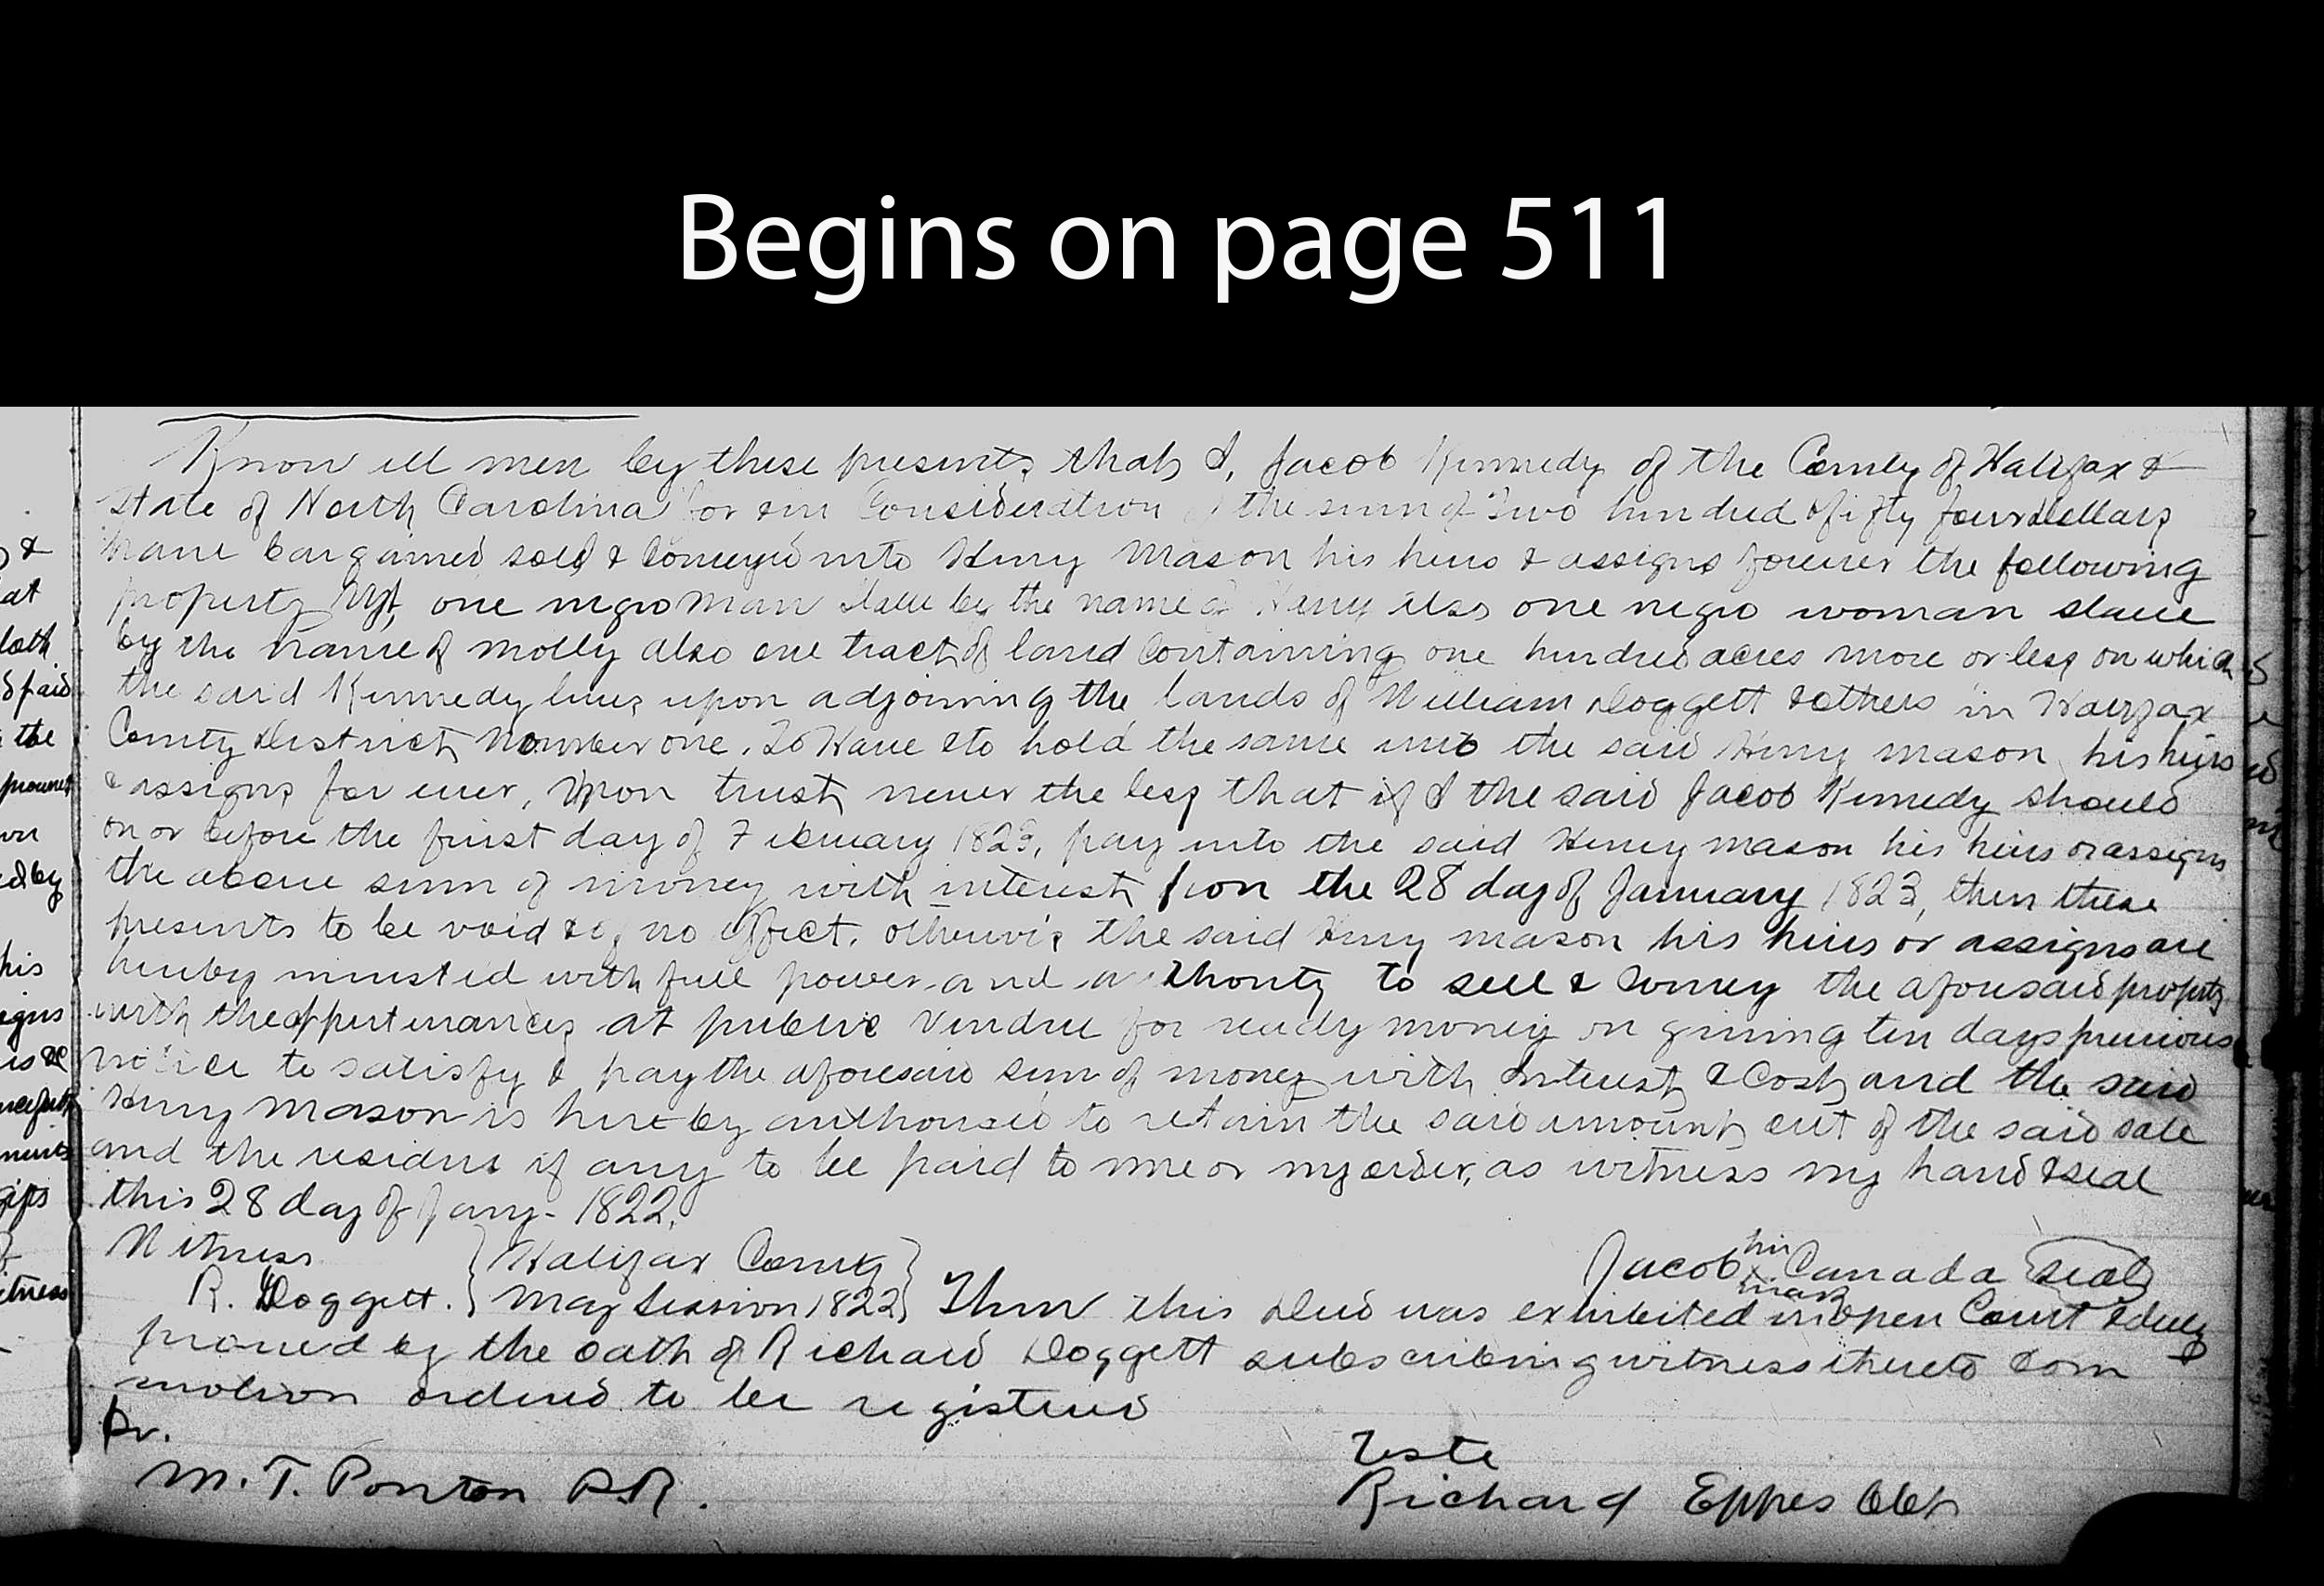 Begins on page 511
Know all men by these presents that I, Jacob Kennedy of the County of Halifax &
State of North Carolina for & in Consideration of the sum of Two hundred & fifty four dollars
have bargained sold & Conveyed unto Henry Mason his heirs & assigns forever the following
property Vizt, one negro man slave by the name of also one negro woman slave
by the name of Molly also one tract of land Containing one hundred acres more or less on which
the said Kennedy lives upon adjoining the lands of William Doggett & others in Halifax
County District Number one. To Have & to hold the same unto the said Henry Mason his heirs
& assigns for ever, Upon trust never the less that if I the said Jacob Kennedy should
on or before the first day of February 1823, pay unto the said Henry Mason his heirs or assigns
the above sum of money with interest from the 28 day of January 1823, then these
presents to be void & of no effect. otherwise the said Henry Mason his heirs or assigns are
hereby invested with full power and authority to sell & Convey the aforesaid property
with the appertinances at public Vendue for ready money on giving ten days previous
notice to satisfy & pay the aforesaid sum of money with Interest & Cost and the said
Henry Mason is hereby authorised to retain the said amount out of the said sale
and the residue if any to be paid to me or my order, as witness my hand & seal
this 28 day of Jany - 1822.
Witness
R. Doggett.
Halifax County
May Session 1822
Jacob his x mark Canada Seal
Then this Deed was exhibited in open Court & duly
proved by the oath of Richard Doggett subscribing witness thereto & on
motion ordered to be registered
Pr.
M. T. Ponton P.R.
Teste
Richard Eppes Clk